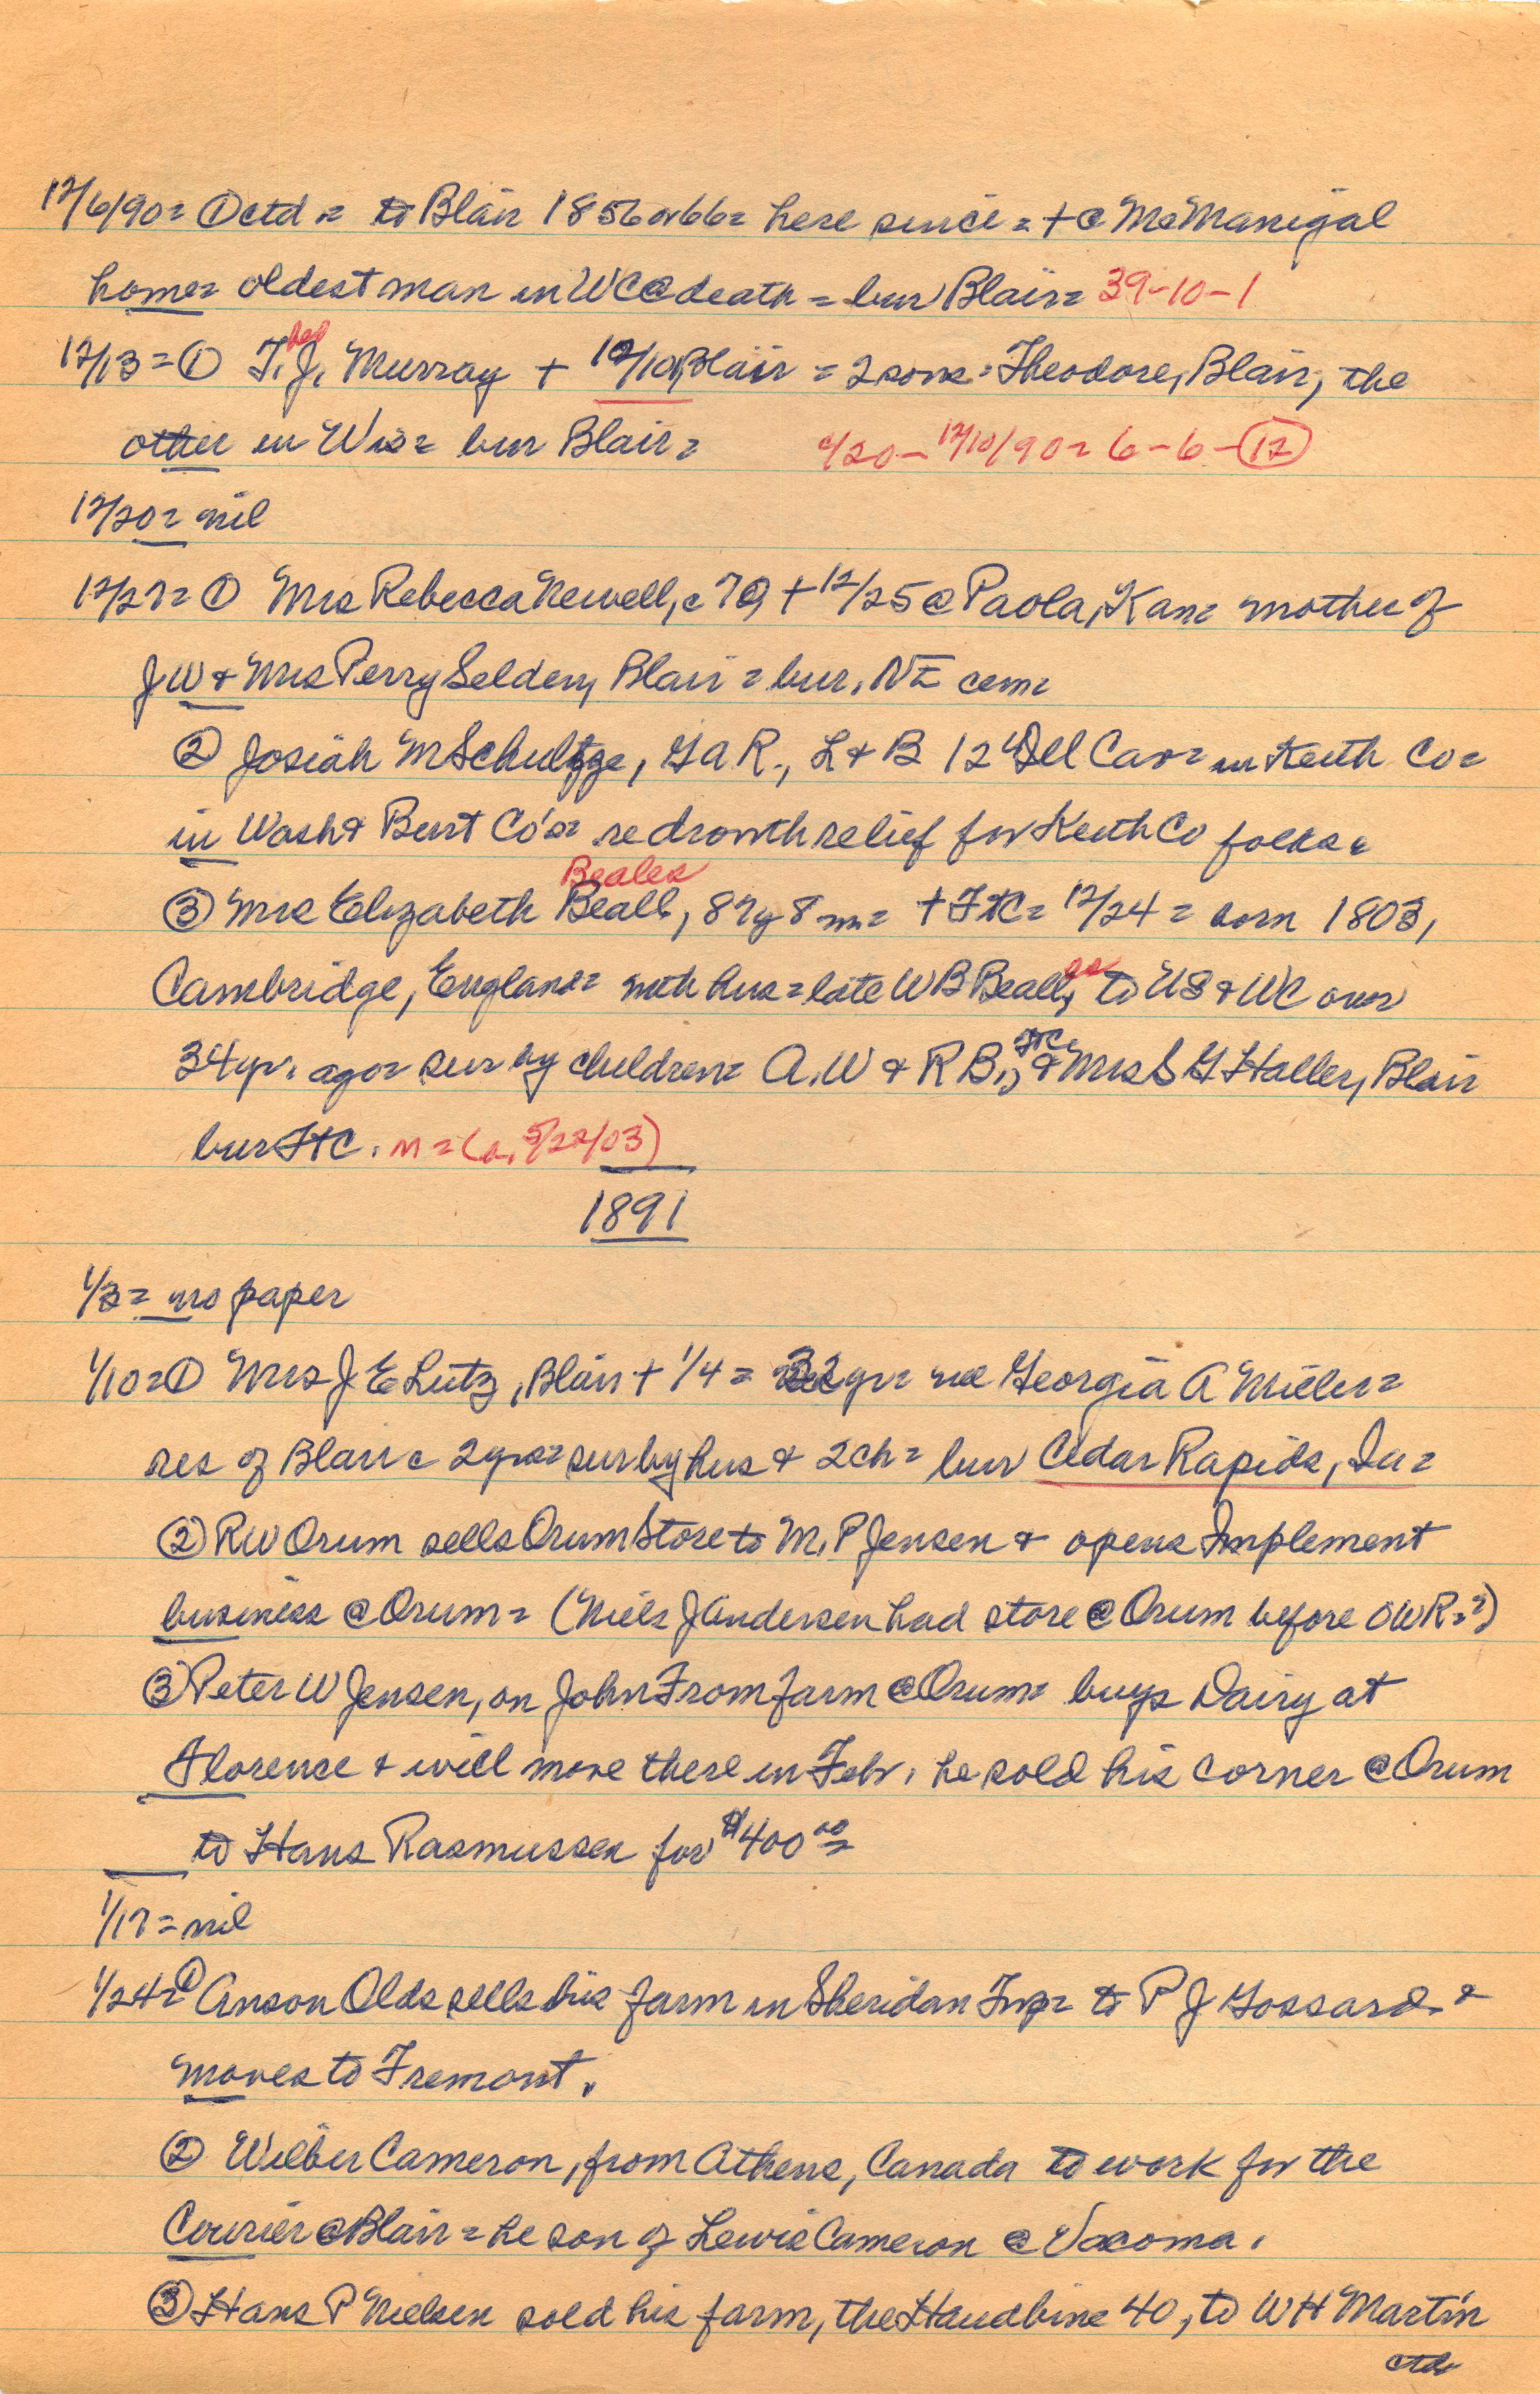 12/6/90= ① ctd = to Blair 1856 or 66= here since = + @ McManigal
home= oldest man in WC @ death = bur Blair= 39-10-1
12/13=① T.J. Murray + 12/10, Blair = 2 sons= Theodore, Blair, the
other in Wis= bur Blair= 12/10/90= 6-6-⑫
12/20= nil
12/27=① Mrs Rebecca Newell, c 70 + 12/25 @ Paola, Kan= mother of
JW & Mrs Perry Selden, Blair = bur. NE cem=
② Josiah M Schultze, GAR., L & B 12 Cav= in Keith Co=
in Wash & Burt Co's= re drowth relief for Keith Co folks=
Beales
③ Mrs Elizabeth Beall, 87y 8m= + FtC= 12/24 = born 1803,
Cambridge, England= with hus = late WB Beall, es to US & WC over
34 yr. ago= sur by children= A.W & R B., FtC, & Mrs S G Haller, Blair
bur FtC. n=(a. 5/22/03)
1891
1/3= no paper
1/10=① Mrs J E Lutz, Blair + 1/4 = 32yr= nee Georgia A Miller=
res of Blair c 2yrs= sur by hus & 2ch= bur Cedar Rapids, Ia=
② RW Orum sells Orum Store to M.P Jensen & opens Implement
business @ Orum= (Niels J Andersen had store @ Orum before OWR=?)
③ Peter W Jensen, on John From farm @ Orum= buys Dairy at
Florence & will move there in Feb. he sold his corner @ Orum
to Hans Rasmussen for $400.00=
1/17= nil
1/24=① Anson Olds sells his farm in Sheridan Twp= to P J Gossard &
moves to Fremont.
② Wilber Cameron, from Athens, Canada to work for the
Courier @ Blair= he son of Lewis Cameron @ Vacoma.
③ Hans P Nielsen sold his farm, the Haudbine 40, to WH Martin
ctd